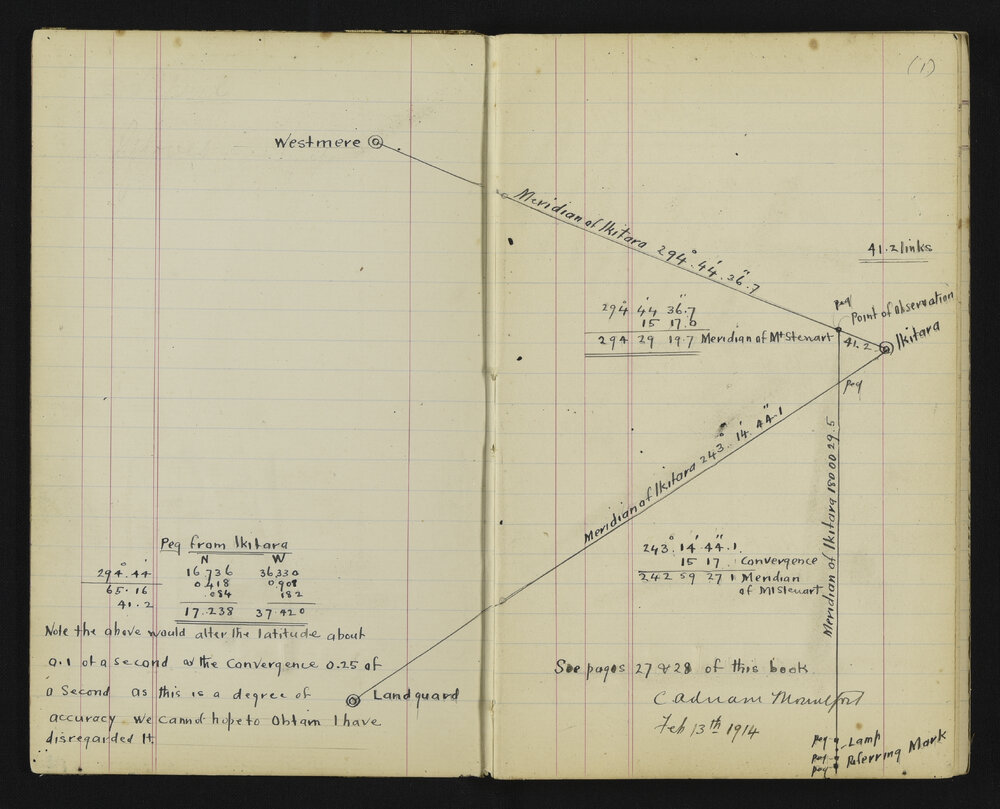 Westmere
Peg from Ikitara
N W
294° 44' 16.736 36.330
65. 16 0.418 0.908
41. 2 .084 182
17.238 37.420
Note the above would alter the latitude about
0.1 of a second or the Convergence 0.25 of
a Second as this is a degree of
accuracy we cannot hope to obtain I have
disregarded it.
Landguard
(1)
Meridian of Ikitara 294° 44' 36".7
41.2 links
peg
Point of observation
Ikitara
41.2
peg
294° 44' 36".7
15 17.0
294 29 19.7 Meridian of Mt Stewart
Meridian of Ikitara 243° 14' 44".1
Meridian of Ikitara 180 00 29.5
243° 14' 44".1
15 17 Convergence
242 59 27 1 Meridian
of Mt Stewart
See pages 27 & 28 of this book
C adnam Mountfort
Feb 13th 1914
peg Lamp
peg Referring Mark
peg